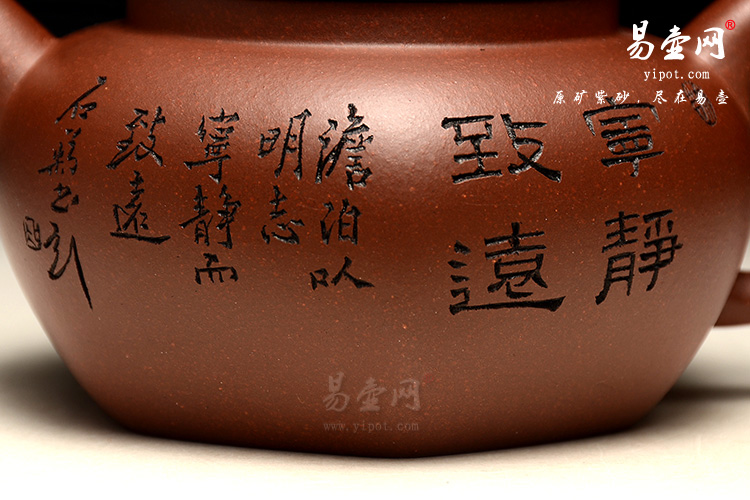 易壶网®
yipot.com
原矿紫砂，尽在易壶
寧靜
致遠
澹泊以
明志
寧靜而
致遠
易壶网
www.yipot.com